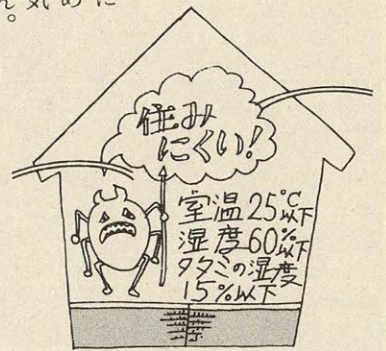 住み
にくい!
室温25℃以下
湿度60%以下
タタミの湿度
15%以下